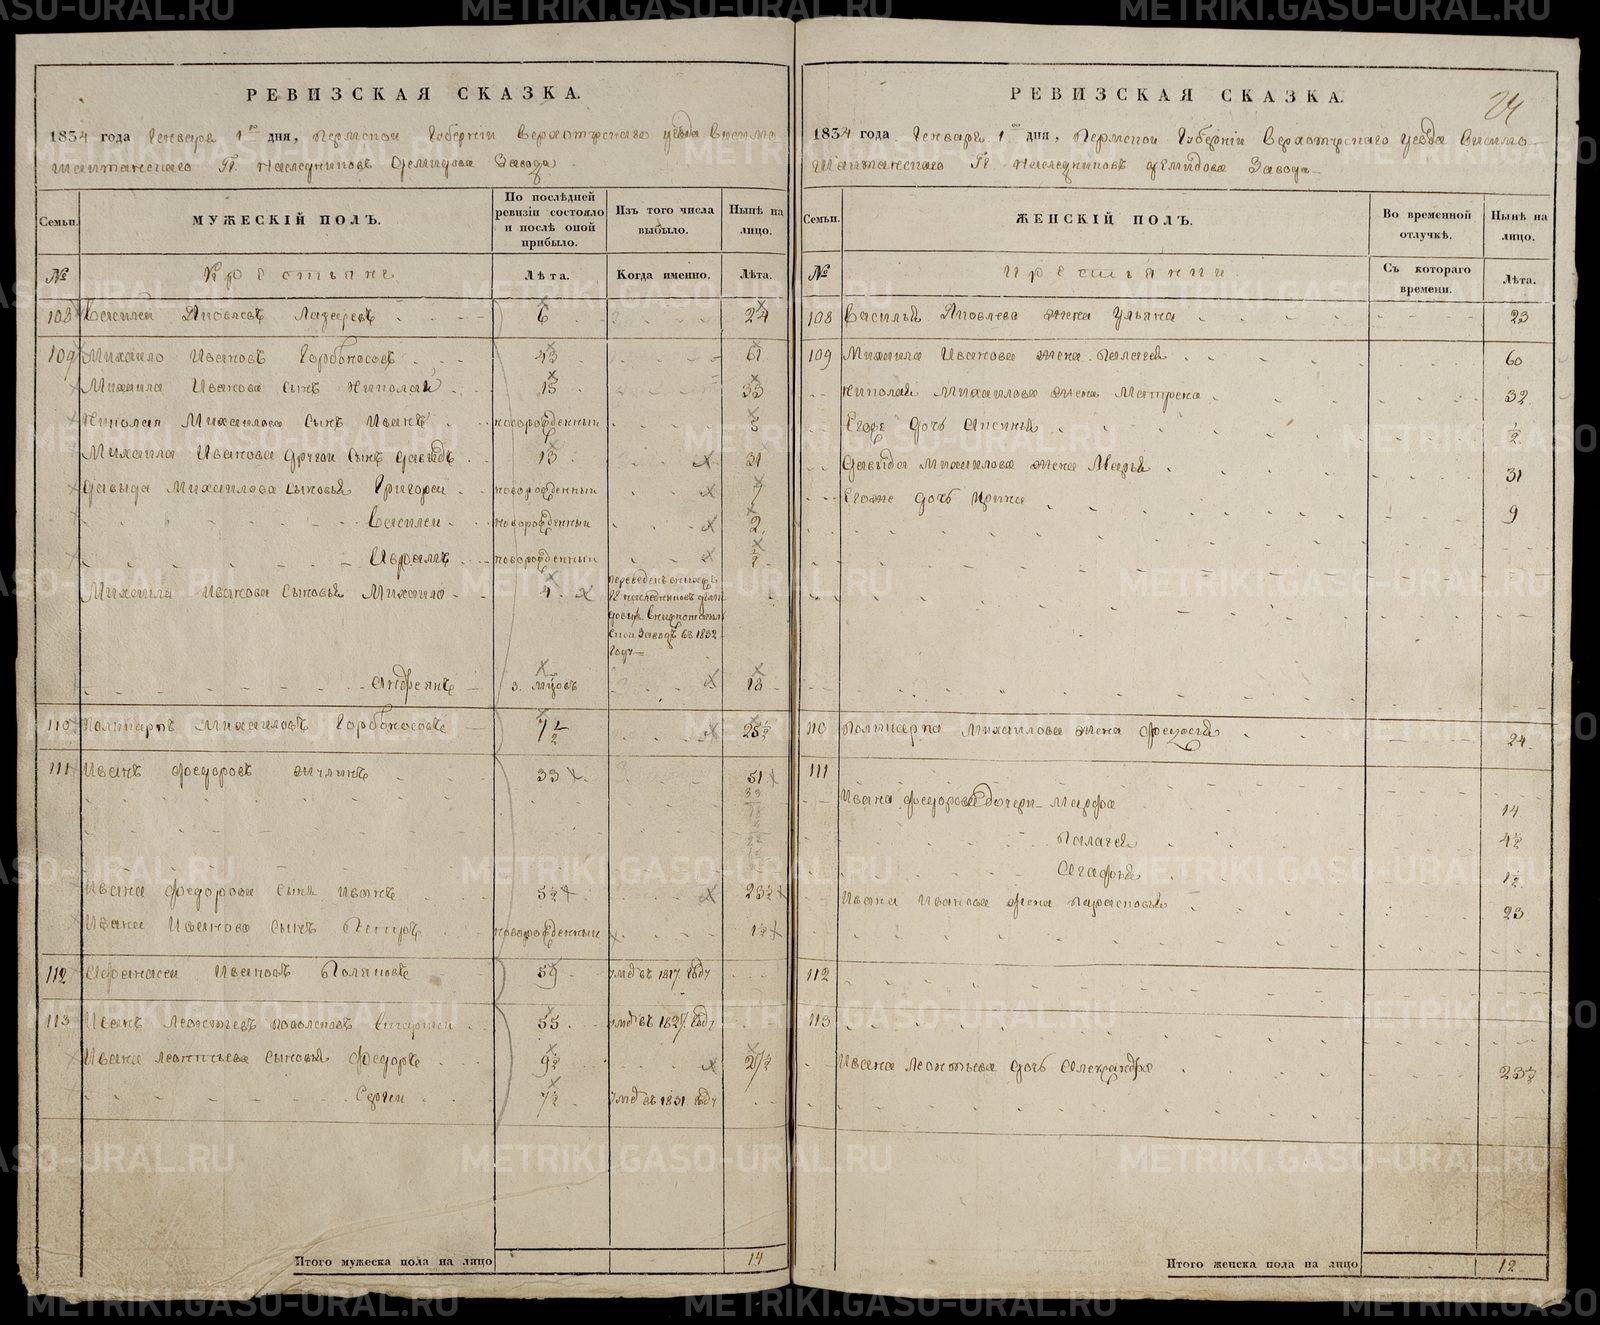 РЕВИЗСКАЯ СКАЗКА.
1834 года Генваря 1го дня, Пермской Губернии Верхотурскаго уезда Висимо
Шайтанскаго Гг. Наследниковъ Демидова Завода
Семьи.
МУЖЕСКІЙ ПОЛЪ.
По послѣдней ревизіи состояло и послѣ оной прибыло.
Изъ того числа выбыло.
Нынѣ на лицо.
№
Крестьяне
Лѣта.
Когда именно.
Лѣта.
108 Василей Яковлевъ Лазаревъ 6 24
109 Михайло Ивановъ Горбоносовъ 43 61
Михаила Иванова сынъ Николай 15 33
Николая Михайлова сынъ Иванъ новорожденный
Михаила Иванова другой сынъ Давыдъ 13 31
Давыда Михайлова сыновья Григорей новорожденный 7
Василей новорожденный 2
Авраамъ новорожденный ½
Михаила Иванова сыновья Михайло 4
переведенъ
Гг. наследниковъ Деми
довыхъ
Заводъ въ 1832
году
Андреянъ 3. мцовъ 18
110 Поликарпъ Михайловъ Горбоносовъ 7½ 25½
111 Иванъ Федоровъ 33 51
Ивана Федорова сынъ Иванъ 5½ 23½
Ивана Иванова сынъ Петръ новорожденный 1½
112 Афанасей Ивановъ Поляковъ 59 умре въ 1817 году
113 Иванъ Леонтьевъ 55 умре въ 1827 году
Ивана Леонтьева сыновья Федоръ 9½ 27½
Сергей 7½ умре въ 1831 году
Итого мужеска пола на лицо 14
РЕВИЗСКАЯ СКАЗКА.
24
1834 года Генваря 1го дня, Пермской Губерніи Верхотурскаго уезда Висимо
Шайтанскаго Гг. Наследниковъ Демидова Завода
Семьи.
ЖЕНСКІЙ ПОЛЪ.
Во временной отлучкѣ.
Нынѣ на лицо.
№
Крестьянки
Съ котораго времени.
Лѣта.
108 Василья Яковлева жена Ульяна 23
109 Михаила Иванова жена Палагея 60
Николая Михайлова жена Матрена 32
Егоже дочь Аксинья ½
Давыда Михайлова жена Марья 31
Егоже дочь Ирина 9
110 Поликарпа Михайлова жена Федосья 24
111
Ивана Федорова дочери Марфа 14
Палагея 4½
Агафья 1½
Ивана Иванова жена Парасковья 23
112
113
Ивана Леонтьева дочь Александра 23½
Итого женска пола на лицо 12
METRIKI.GASO-URAL.RU